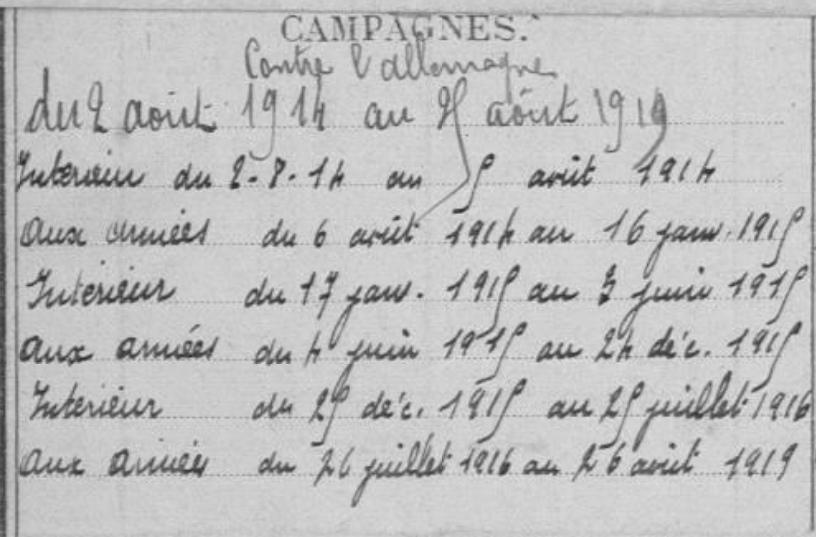 CAMPAGNES.
Contre l'allemagne
du 2 août 1914 au 25 août 1919
Intérieur du 2-8-14 au 5 août 1914
aux armées du 6 août 1914 au 16 janv. 1915
Intérieur du 17 janv. 1915 au 3 juin 1915
aux armées du 4 juin 1915 au 24 déc. 1915
Intérieur du 25 déc. 1915 au 25 juillet 1916
aux armées du 26 juillet 1916 au 26 août 1919